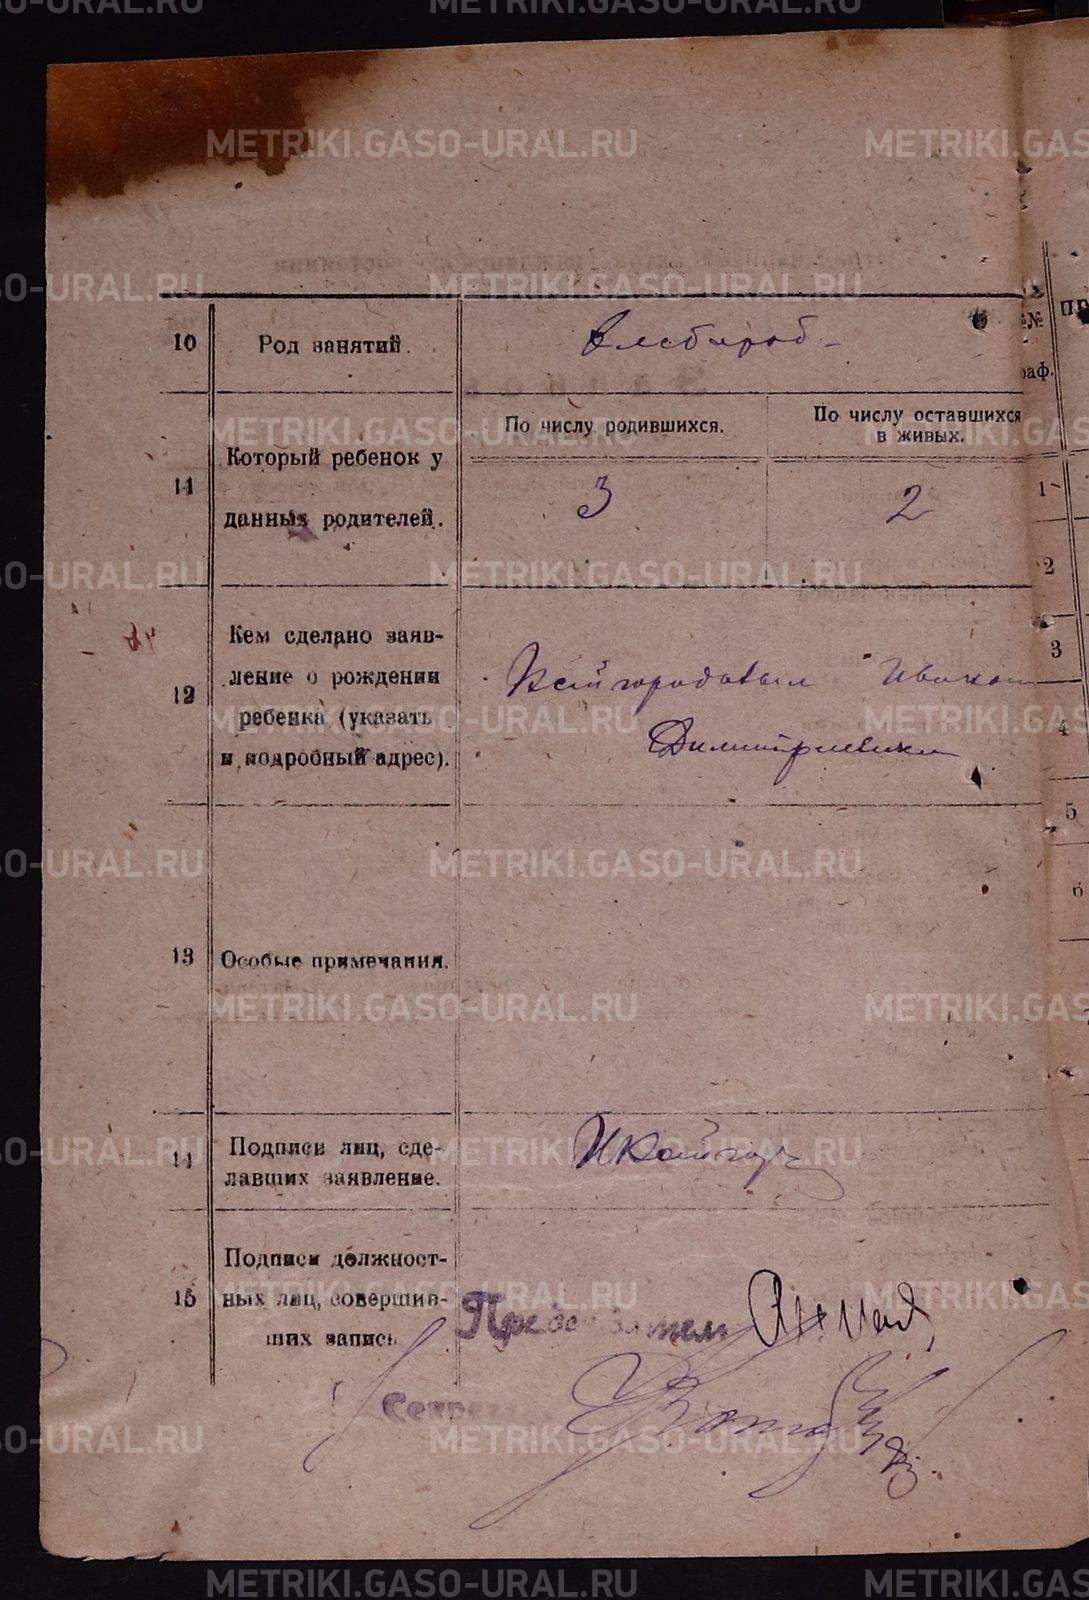 METRIKI.GASO-URAL.RU
10 Род занятий. Хлебороб
11 Который ребенок у данных родителей.
По числу родившихся.
По числу оставшихся в живых.
3
2
12 Кем сделано заяв-
ление о рождении
ребенка (указать
и подробный адрес).
Кайгородовым Иваном
Димитриевичем
13 Особые примечания.
14 Подписи лиц, сде-
лавших заявление.
ИКайгор
15 Подписи должност-
ных лиц, совершив-
ших запись
Председатель
Секрет
№№
раф.
пр
1
2
3
4
5
6